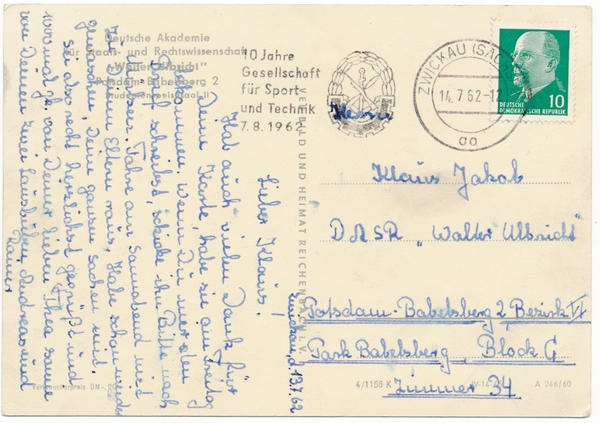 Deutsche Akademie
für Staats- und Rechtswissenschaft
"Walter Ulbricht"
Potsdam-Babelsberg 2
10 Jahre
Gesellschaft
für Sport
und Technik
7.8.1962
ZWICKAU (SACHS)
14.7.62-12
aa
DEUTSCHE
DEMOKRATISCHE REPUBLIK
10
Klaus Jakob
DASR "Walter Ulbricht"
Potsdam-Babelsberg 2, Bezirk VI
Park Babelsberg, Block G
Zimmer 34
Zwickau, d. 13.7.62
Lieber Klaus!
Hab auch vielen Dank für
Deine Karte, habe sie am Freitag
bekommen. Wenn Du mir den
Brief schreibst, schicke ihn bitte nach
Meissen, fahre am Sonnabend wieder
zu Deinen Eltern raus. Habe schon
gewaschen, Deine ganzen Sachen
Sei also recht herzlichst gegrüßt und
1000 mal ge. von Deiner lieben Thea sowie
von Deinen zwei Lausbuben Andreas und
Rainer
VERLAG BILD UND HEIMAT REICHENBACH I. V.
Verbraucherpreis DM -,20
4/1158 K
A 246/60